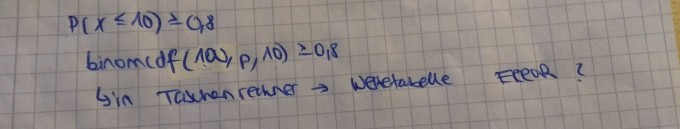 P(X ≤ 10) ≥ 0,8
binomcdf(100, p, 10) ≥ 0,8
↳ in Taschenrechner → Wertetabelle ERROR ?